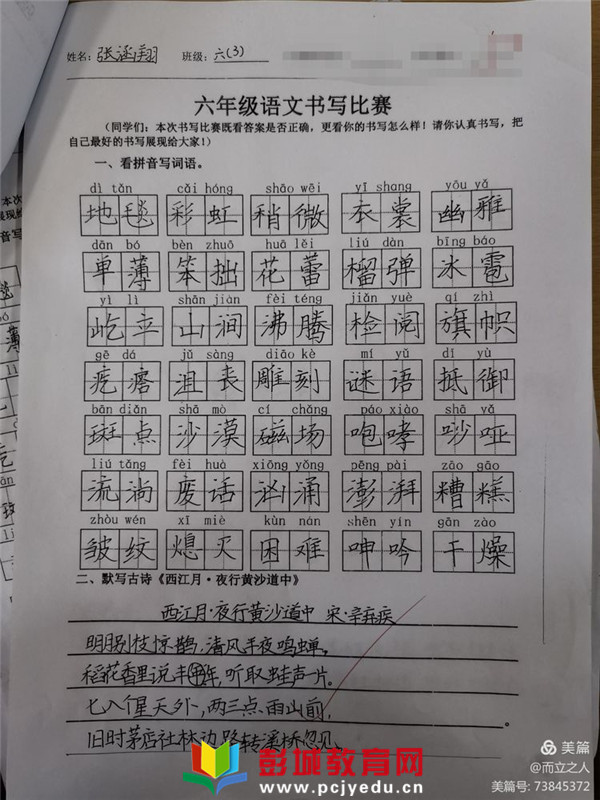 姓名：张涵翔 班级：六(3)
六年级语文书写比赛
（同学们：本次书写比赛既看答案是否正确，更看你的书写怎么样！请你认真书写，把
自己最好的书写展现给大家！）
一、看拼音写词语。
dì tǎn cǎi hóng shāo wēi yī shang yōu yǎ
地毯 彩虹 稍微 衣裳 幽雅
dān bó bèn zhuō huā lěi liú dàn bīng báo
单薄 笨拙 花蕾 榴弹 冰雹
yì lì shān jiàn fèi téng jiǎn yuè qí zhì
屹立 山涧 沸腾 检阅 旗帜
gē dá jǔ sàng diāo kè mí yǔ dǐ yù
疙瘩 沮丧 雕刻 谜语 抵御
bān diǎn shā mò cí chǎng páo xiào shā yǎ
斑点 沙漠 磁场 咆哮 吵哑
liú tǎng fèi huà xiōng yǒng pēng pài zāo gāo
流淌 废话 汹涌 澎湃 糟糕
zhòu wén xī miè kùn nán shēn yín gān zào
皱纹 熄灭 困难 呻吟 干燥
二、默写古诗《西江月·夜行黄沙道中》
西江月·夜行黄沙道中 宋·辛弃疾
明月别枝惊鹊，清风半夜鸣蝉。
稻花香里说丰年，听取蛙声一片。
七八个星天外，两三点雨山前。
旧时茅店社林边，路转溪桥忽见。
本次
展现
写
美篇
@而立之人
美篇号：73845372
彭城教育网
www.pcjyedu.cn